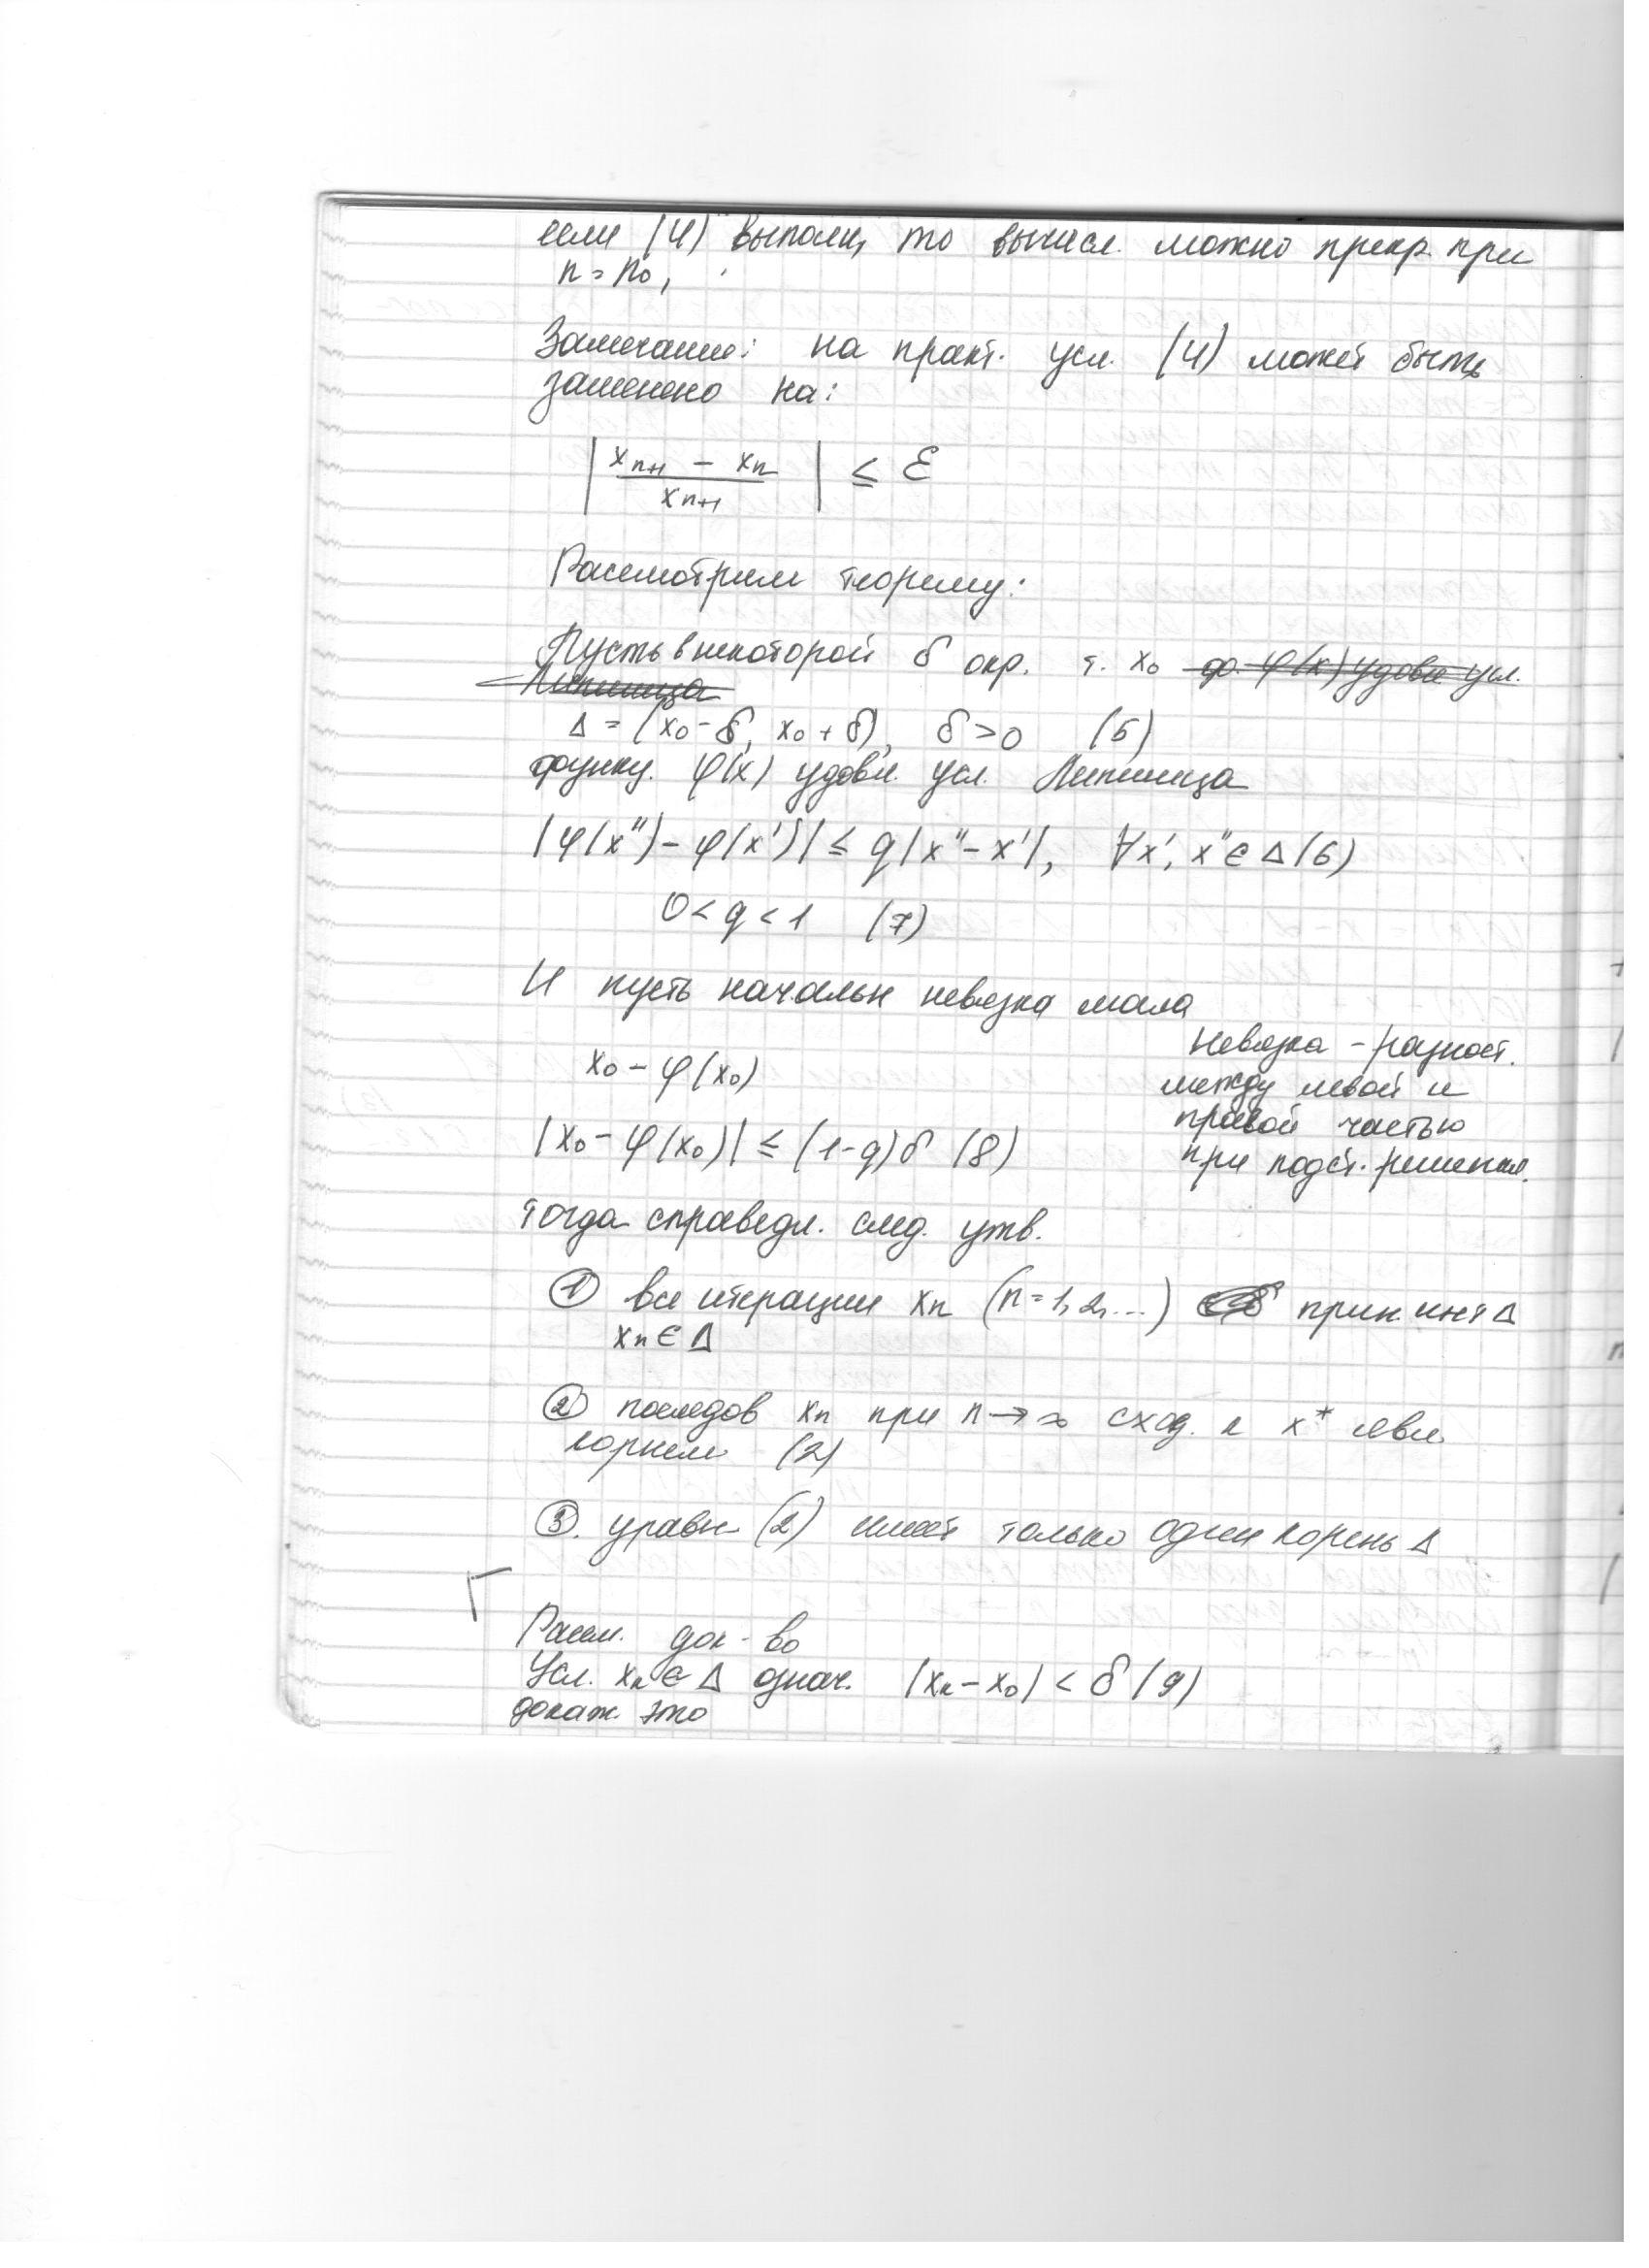 если (4) выполн, то вычисл. можно прекр. при
n = n₀,
Замечание: на практ. усл. (4) может быть
заменено на:
| (xₙ₊₁ − xₙ) / xₙ₊₁ | ≤ ε
Рассмотрим теорему:
Пусть в некоторой δ окр. т. x₀ ф. φ(x) удовл усл.
Липшица
Δ = (x₀ − δ, x₀ + δ), δ > 0 (5)
функц. φ(x) удовл. усл. Липшица
|φ(x″) − φ(x′)| ≤ q|x″ − x′|, ∀x′, x″ ∈ Δ (6)
0 < q < 1 (7)
И пусть начальн невязка мала
x₀ − φ(x₀)
|x₀ − φ(x₀)| ≤ (1−q)δ (8)
Невязка – разност.
между левой и
правой частью
при подст. решения.
Тогда справедл. след. утв.
① все итерации xₙ (n = 1, 2, ...) прин. инт Δ
xₙ ∈ Δ
② последов xₙ при n → ∞ сход. к x* явл.
корнем (2)
③. уравн (2) имеет только один корень Δ
Рассм. док-во
Усл. xₙ ∈ Δ означ. |xₙ − x₀| < δ (9)
докаж. это